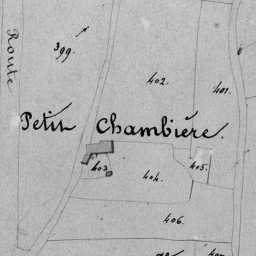 399.
402.
401.
Route
Petit Chambière
403
404.
405.
406.